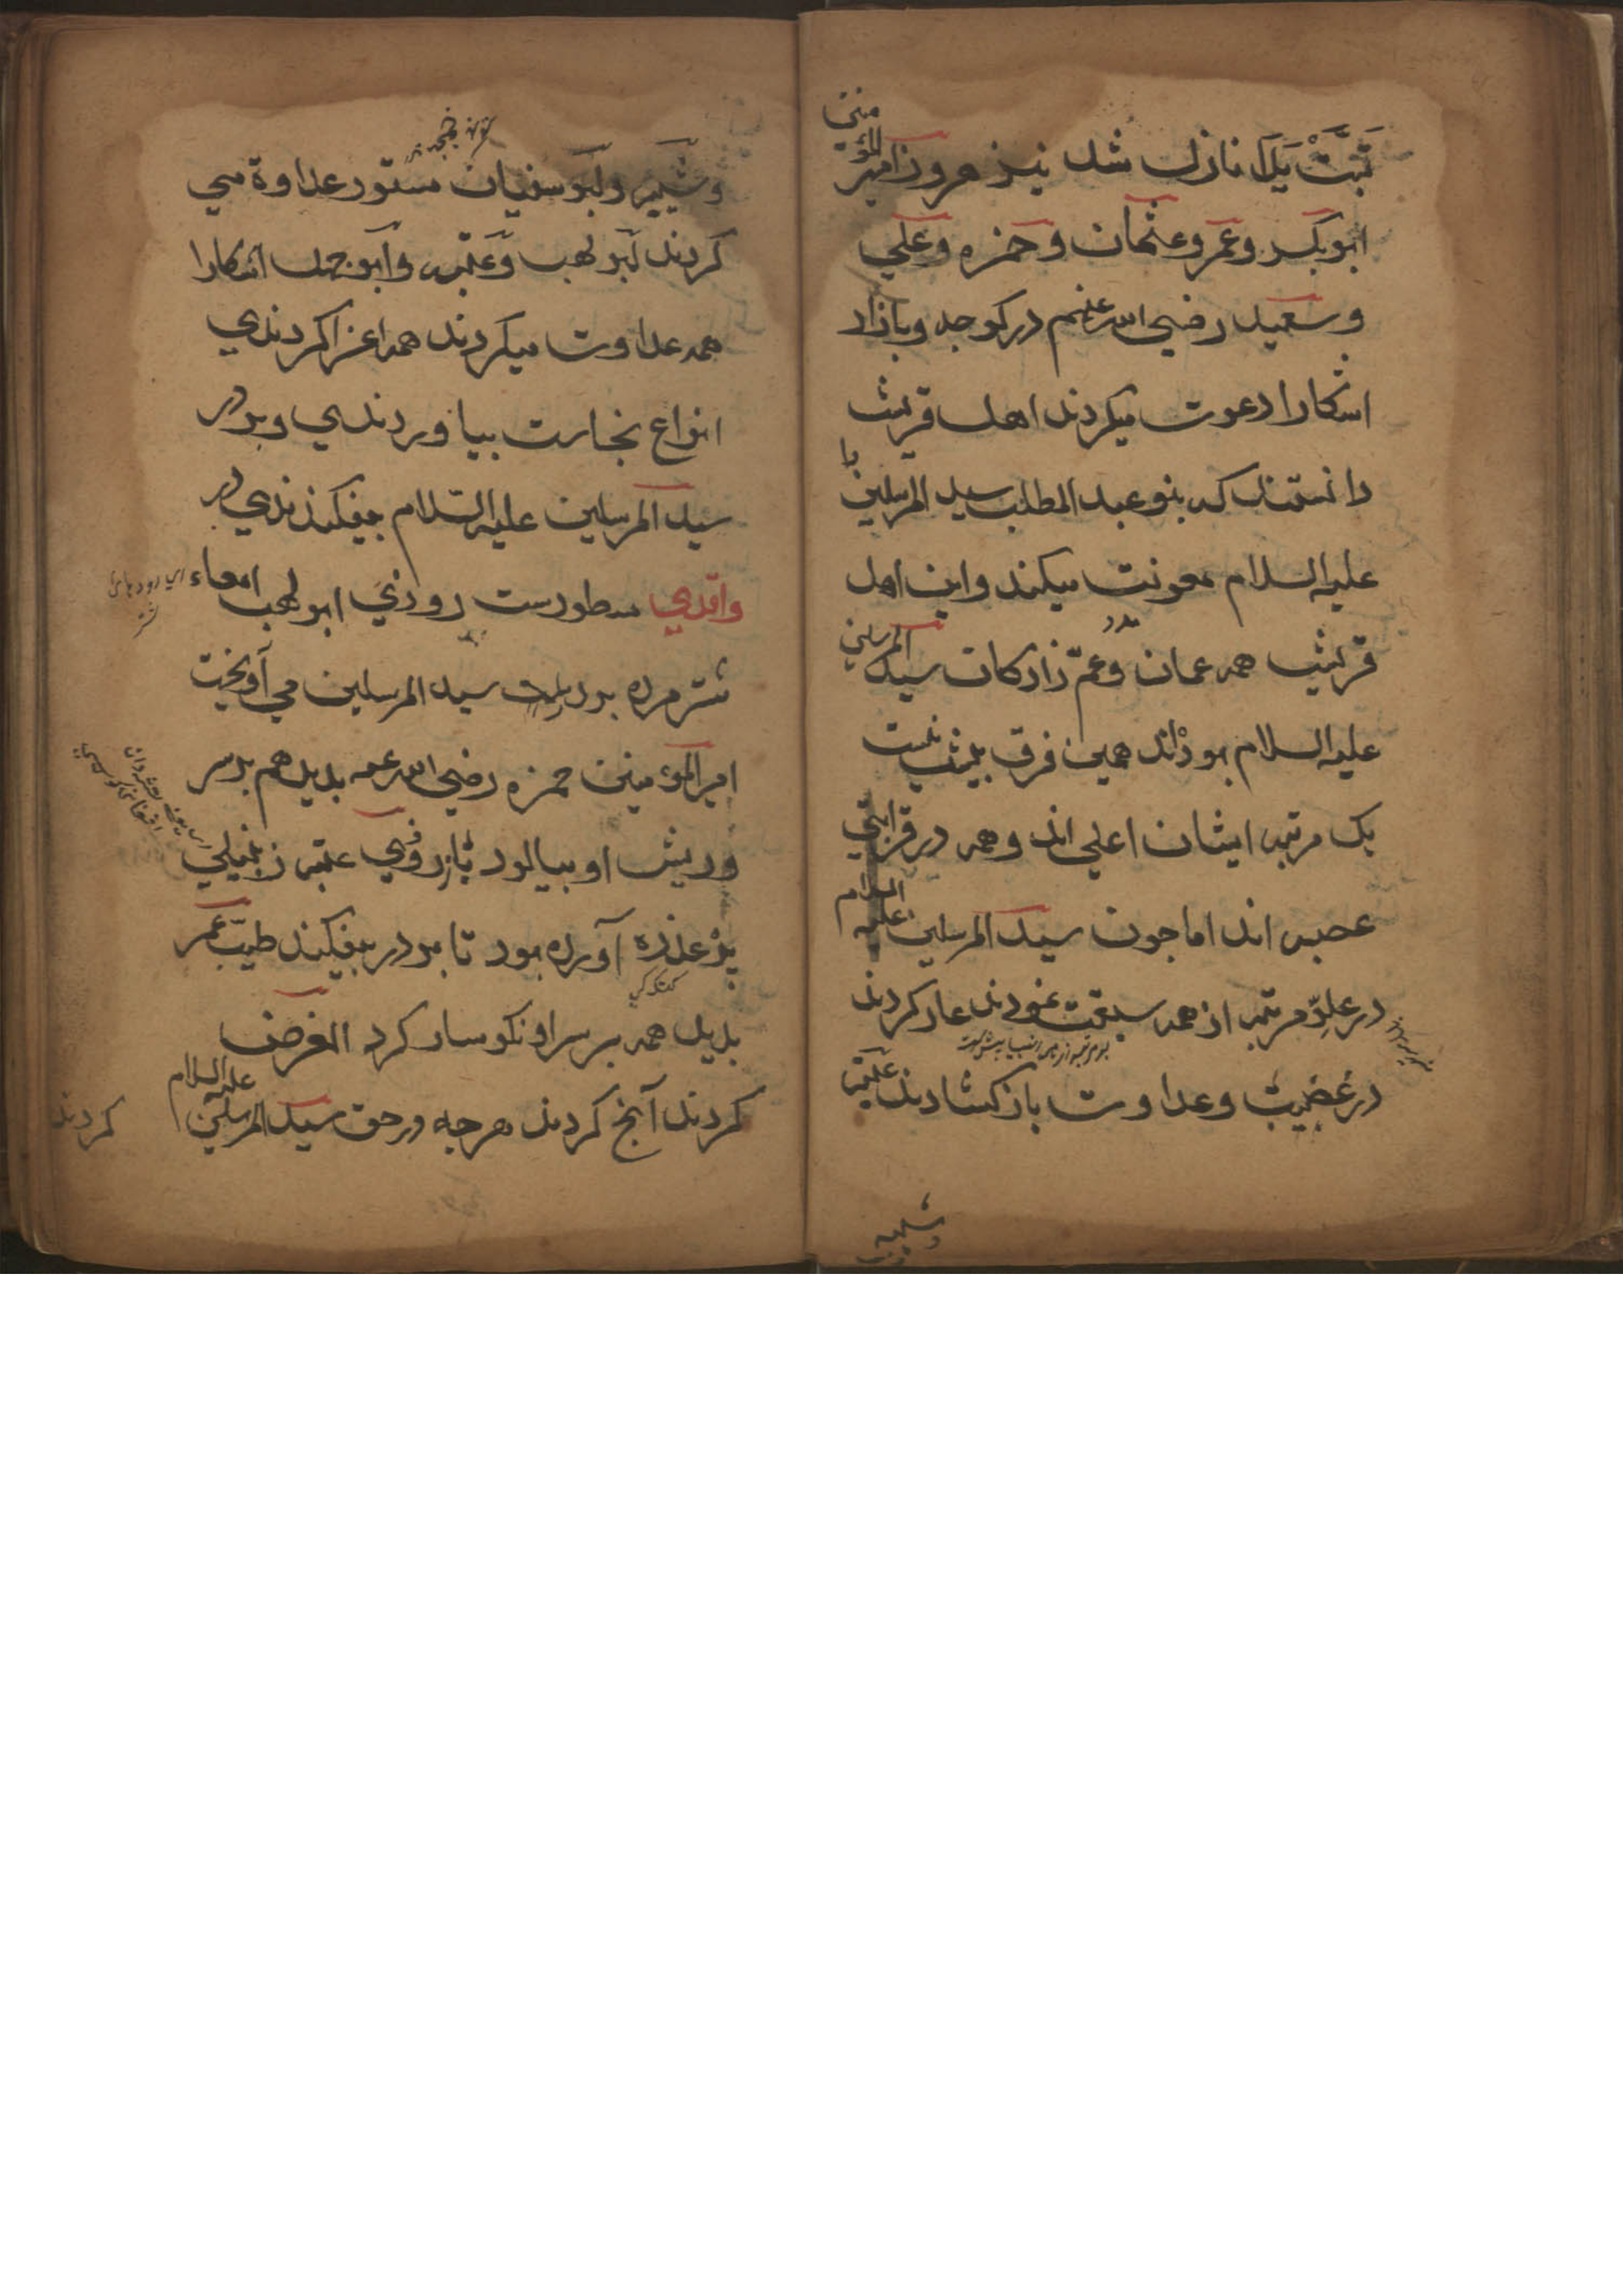 تَبَّتْ يَدَا نازل شد نيز هر روز امير المؤمنين
ابوبكر وعمر وعثمان وحمزه وعلي
وسعيد رضي الله عنهم در كوجه وبازار
اشكارا دعوت ميكردند اهل قريش
دانستند كه بنو عبد المطلب سيد المرسلين را
عليه السلام معونت ميكنند واين اهل
مدد
قريش همه عمان وعمّ زادكان سيد المرسلين
عليه السلام بوذاند همين فرق بيش نيست
يك مرتبه ايشان اعلي اند وهمه در قرابتي
عصبه اند اما جون سيد المرسلين عليه السلام
در علوّ مرتبه از همه سبقت نمودند عار كردند
در غضبيت وعداوت باز كشادند عتبه
وشيبه
وشيبه وابو سفيان مستور عداوة مي
كردند ابو لهب وعتبه وابو جهل اشكارا
همه عداوت ميكردند همه اغرا كردندي
انواع نجاست بياوردندي وبر در
سيد المرسلين عليه السلام بيفكندندي در
واقدي مسطورست روزي ابو لهب امعاء
شتر مرده بر در سيد المرسلين مي آويخت
امير المؤمنين حمزه رضي الله عنه بديد هم بر سر
وريش او بيالود باز روزي عتبه زنبيلي
پر عذره آورده بود تا بر در بيفكند طيب عمر
بديد همه بر سر او نكوسار كرد الغرض
كردند آنج كردند هرجه در حق سيد المرسلين عليه السلام
كردند